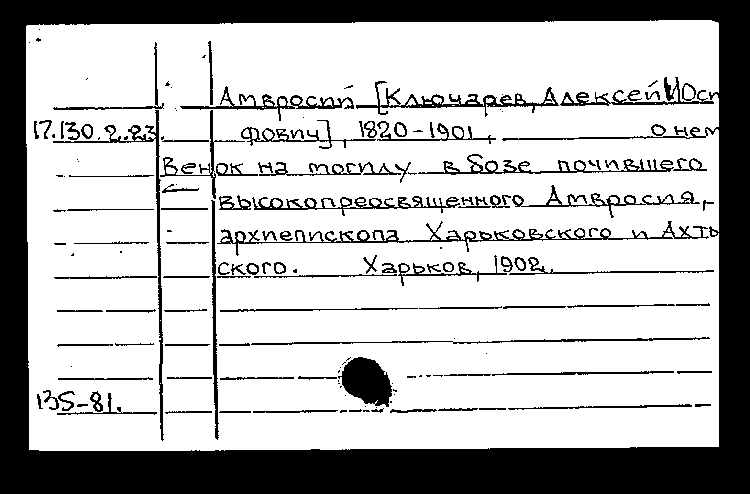 Амвросий [Ключарев, Алексей Иос
17.130.2.23. фович], 1820-1901, о нем
Венок на могилу в бозе почившего
высокопреосвященного Амвросия,
архиепископа Харьковского и Ахты
ского. Харьков, 1902.
135-81.